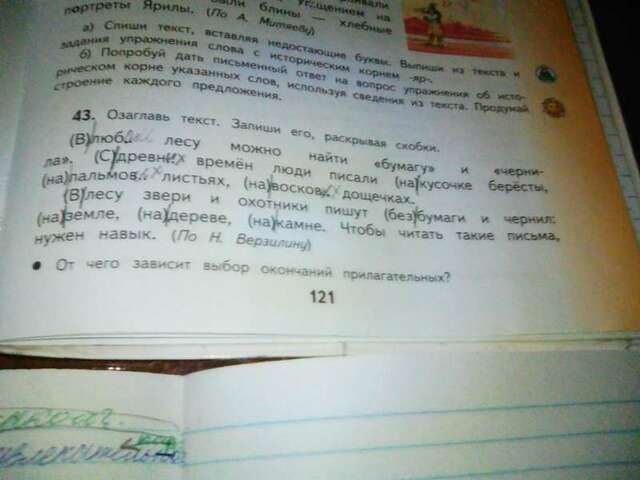 портреты Ярилы. (По А. Митяеву) блины — хлебные
а) Спиши текст, вставляя недостающие буквы. Выпиши из текста и
задания упражнения слова с историческим корнем -яр-.
б) Попробуй дать письменный ответ на вопрос упражнения об исто-
рическом корне указанных слов, используя сведения из текста. Продумай
строение каждого предложения.
43. Озаглавь текст. Запиши его, раскрывая скобки.
(В)люб лесу можно найти «бумагу» и «черни-
ла». (С)древних времён люди писали (на)кусочке берёсты,
(на)пальмов..х листьях, (на)восков..х дощечках.
(В)лесу звери и охотники пишут (без)бумаги и чернил:
(на)земле, (на)дереве, (на)камне. Чтобы читать такие письма,
нужен навык. (По Н. Верзилину)
● От чего зависит выбор окончаний прилагательных?
121